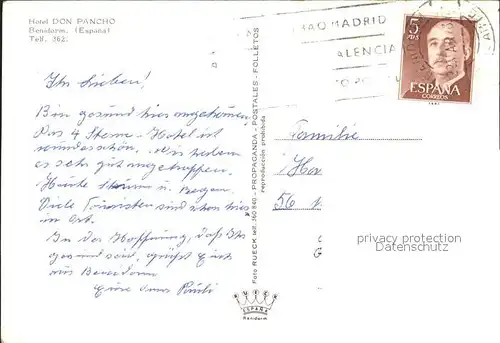 Hotel DON PANCHO
Benidorm. (España)
Telf. 362.
Ihr Lieben!
Bin gesund hier angekommen,
Das 4 Sterne-Hotel ist
wunderschön, Wir haben
es sehr gut angetroffen.
Heute Sturm u. Regen.
Viele Touristen sind schon hier
im Ort.
In der Hoffnung, daß Ihr
gesund seid, grüßt Euch
aus Benidorm
Eure
Foto RUECK telf. 360 860 - PROPAGANDA - POSTALES - FOLLETOS
reproducción prohibida
RUECK
Benidorm
MADRID
VALENCIA
5
PTS
ESPAÑA
CORREOS
Familie
56
privacy protection
Datenschutz